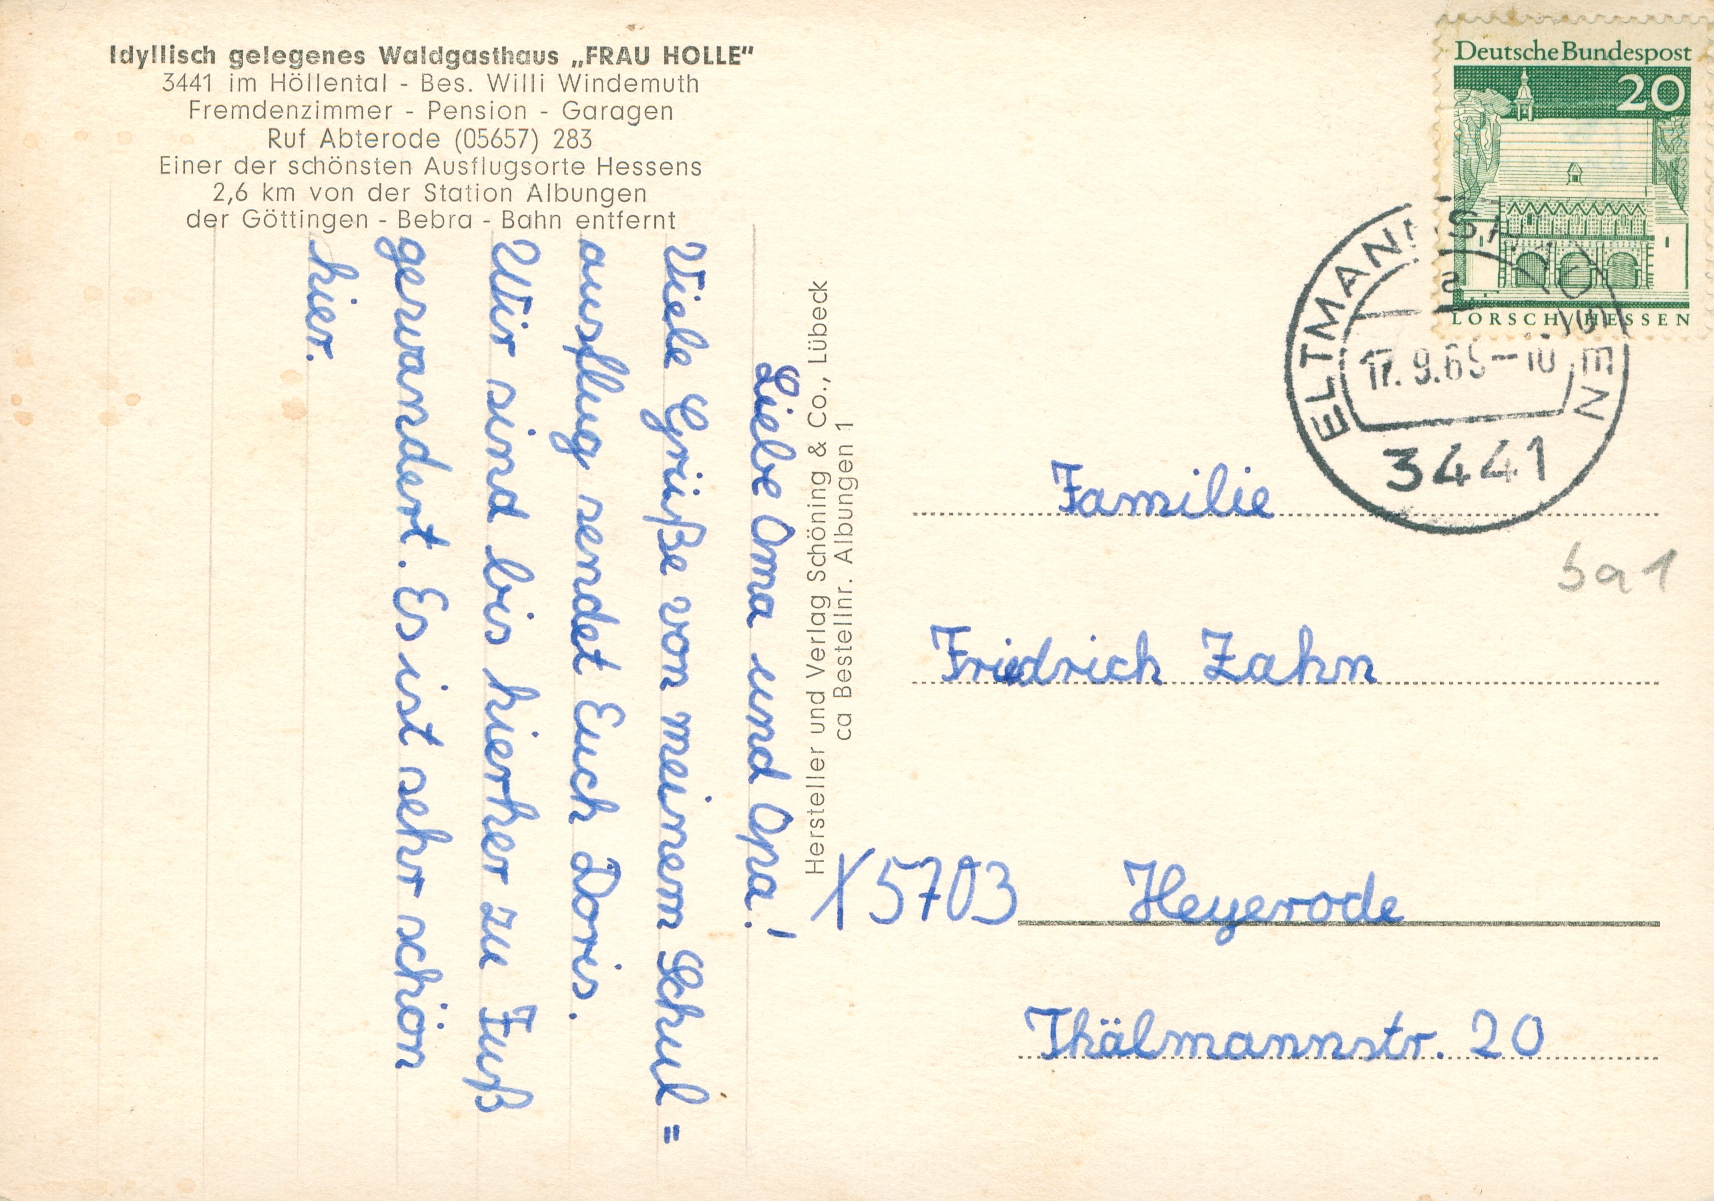 Idyllisch gelegenes Waldgasthaus „FRAU HOLLE"
3441 im Höllental - Bes. Willi Windemuth
Fremdenzimmer - Pension - Garagen
Ruf Abterode (05657) 283
Einer der schönsten Ausflugsorte Hessens
2,6 km von der Station Albungen
der Göttingen - Bebra - Bahn entfernt
Liebe Oma und Opa!
Viele Grüße von meinem Schul=
ausflug sendet Euch Doris.
Wir sind bis hierher zu Fuß
gewandert. Es ist sehr schön
hier.
Hersteller und Verlag Schöning & Co., Lübeck
ca Bestellnr. Albungen 1
Deutsche Bundespost
20
LORSCH/HESSEN
17.9.69-10
3441
5a1
Familie
Friedrich Zahn
X5703 Heyerode
Thälmannstr. 20